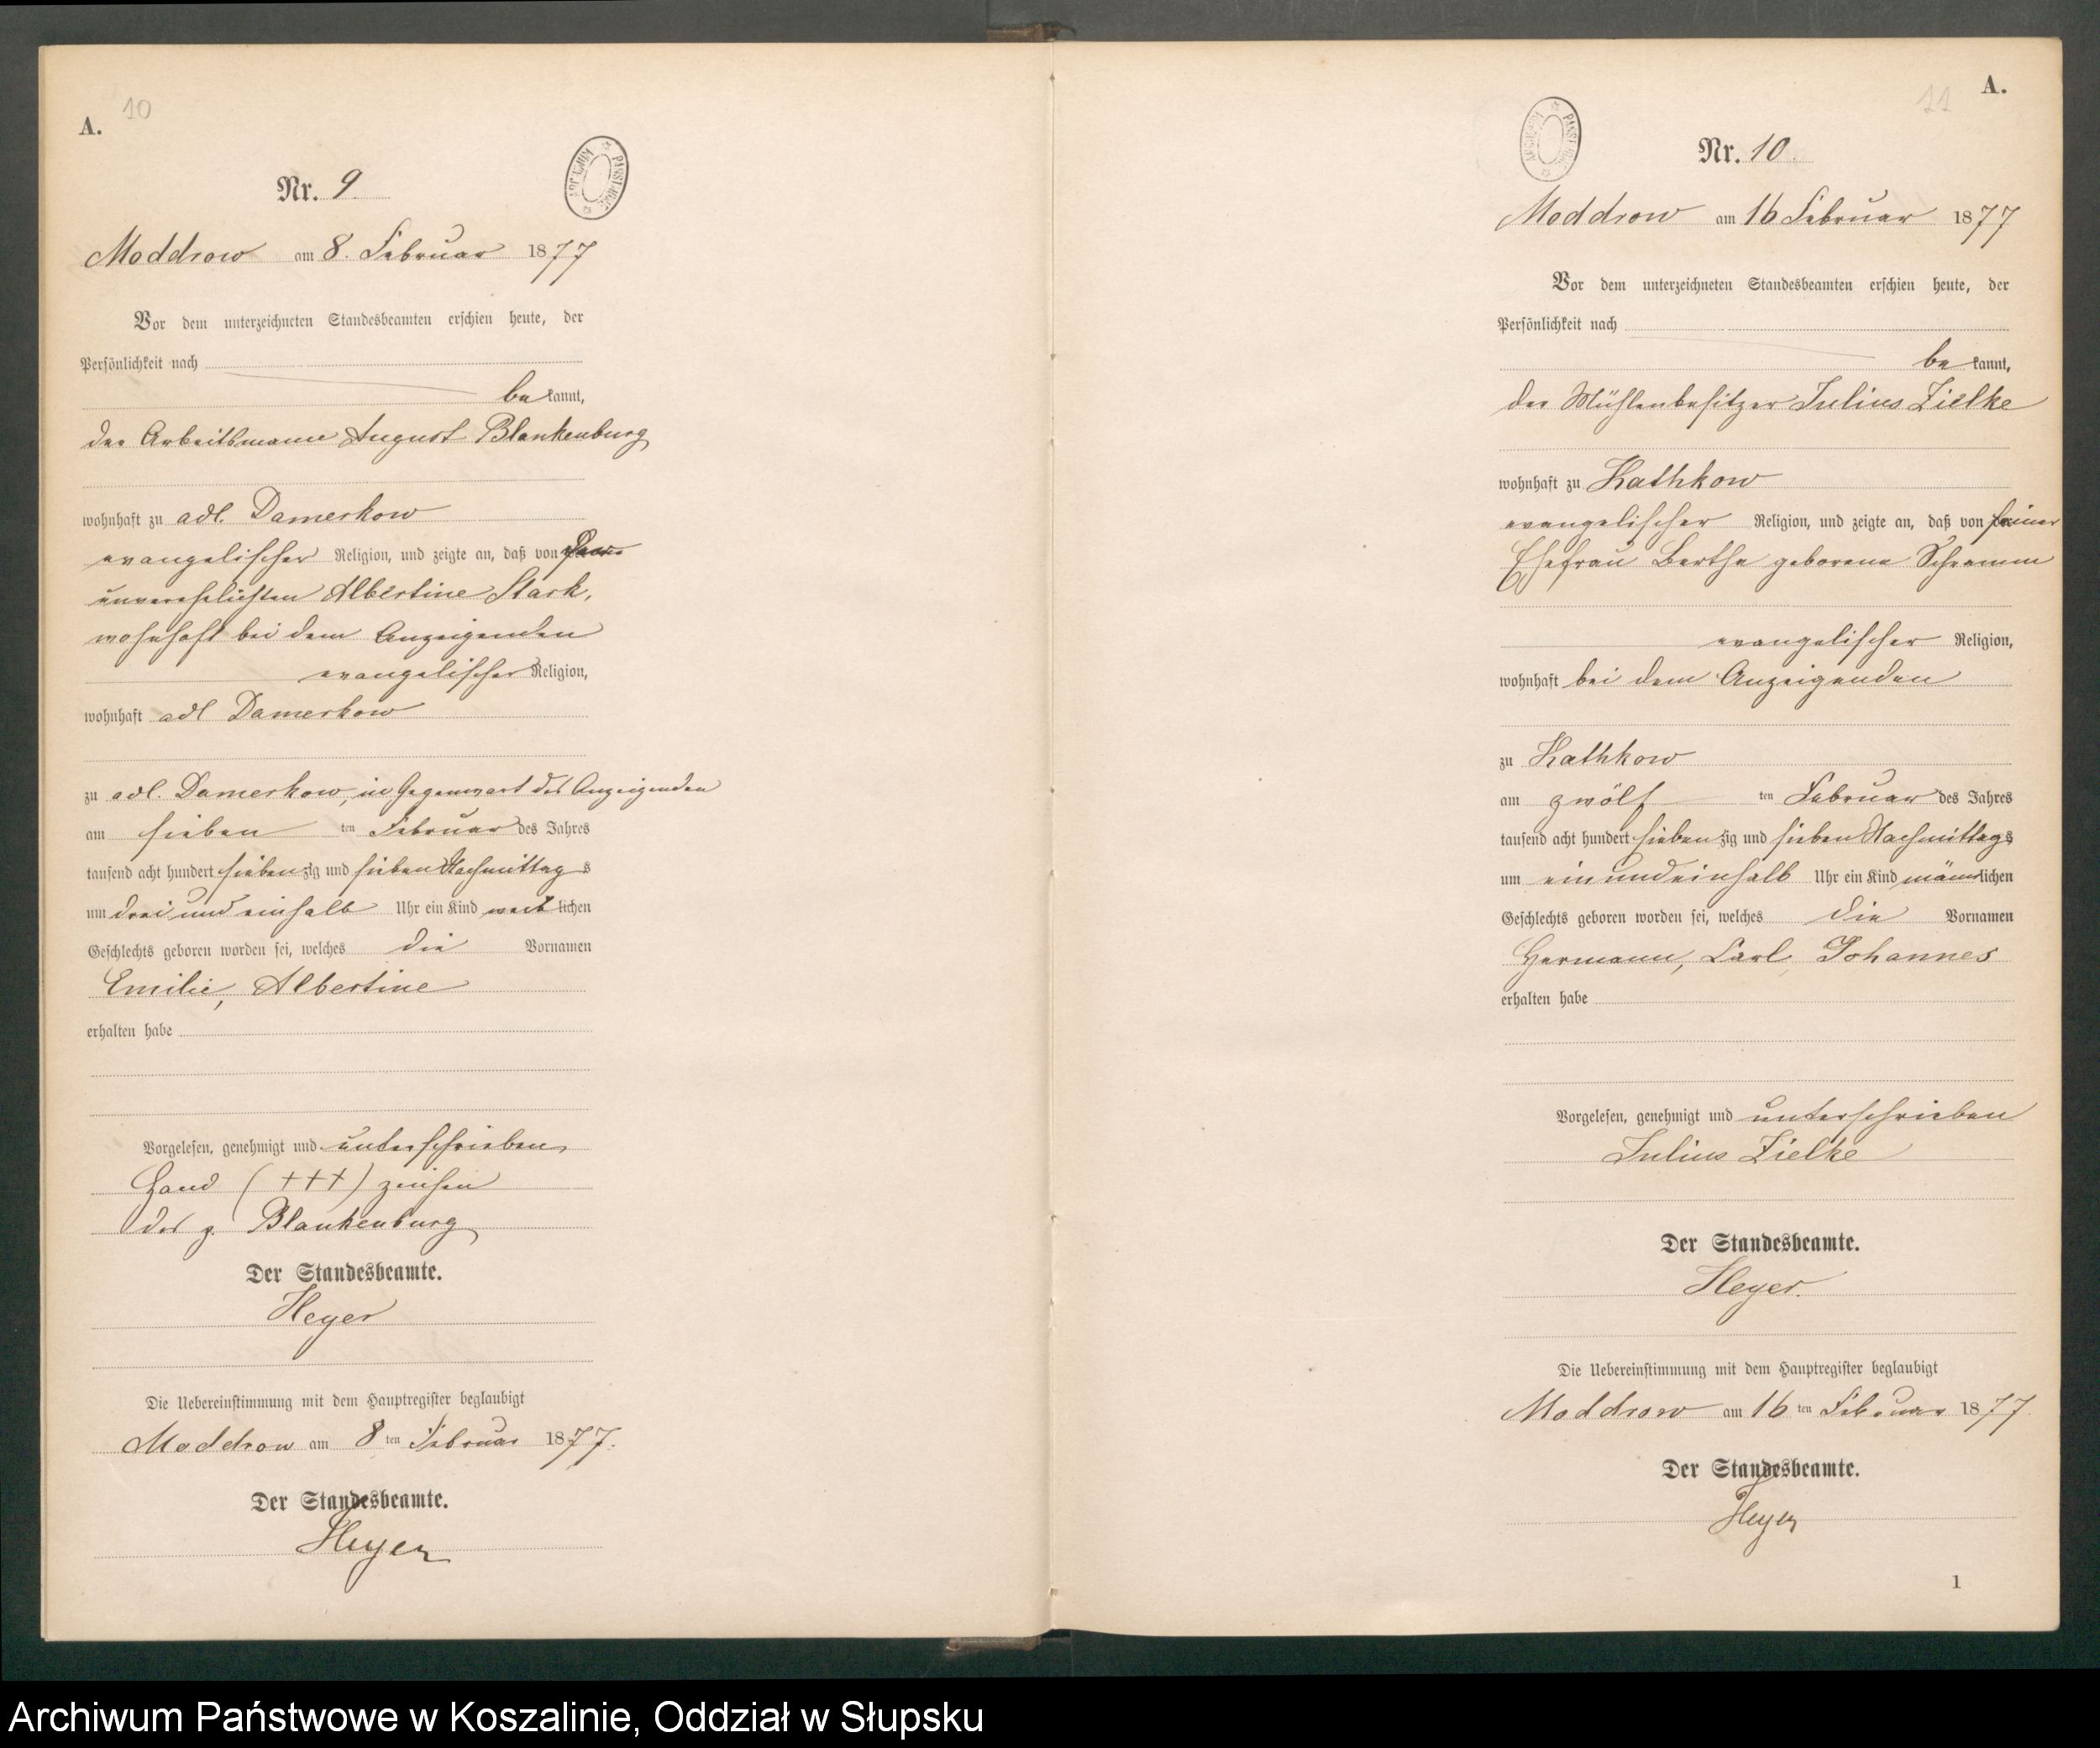 10
A.
Nr. 9.
Moddrow am 8. Februar 1877
Vor dem unterzeichneten Standesbeamten erschien heute, der
Persönlichkeit nach
be kannt,
der Arbeitsmann August Blankenburg
wohnhaft zu adl. Damerkow
evangelischer Religion, und zeigte an, daß von der
unverehelichten Albertine Stark,
wohnhaft bei dem Anzeigenden
evangelischer Religion,
wohnhaft adl Damerkow
zu adl. Damerkow, in Gegenwart des Anzeigenden
am sieben ten Februar des Jahres
tausend acht hundert sieben zig und sieben Nachmittag s
um drei und einhalb Uhr ein Kind weib lichen
Geschlechts geboren worden sei, welches die Vornamen
Emilie, Albertine
erhalten habe
Vorgelesen, genehmigt und unterschrieben
Hand (+++) zeichen
des p. Blankenburg
Der Standesbeamte.
Heyer
Die Uebereinstimmung mit dem Hauptregister beglaubigt
Moddrow am 8 ten Februar 1877.
Der Standesbeamte.
Heyer
11
A.
Nr. 10.
Moddrow am 16 Februar 1877
Vor dem unterzeichneten Standesbeamten erschien heute, der
Persönlichkeit nach
be kannt,
der Mühlenbesitzer Julius Zielke
wohnhaft zu Kathkow
evangelischer Religion, und zeigte an, daß von seiner
Ehefrau Bertha geborene Schramm
evangelischer Religion,
wohnhaft bei dem Anzeigenden
zu Kathkow
am zwölf ten Februar des Jahres
tausend acht hundert sieben zig und sieben Nachmittags
um ein und einhalb Uhr ein Kind männlichen
Geschlechts geboren worden sei, welches die Vornamen
Hermann, Carl, Johannes
erhalten habe
Vorgelesen, genehmigt und unterschrieben
Julius Zielke
Der Standesbeamte.
Heyer.
Die Uebereinstimmung mit dem Hauptregister beglaubigt
Moddrow am 16 ten Februar 1877.
Der Standesbeamte.
Heyer
1
Archiwum Państwowe w Koszalinie, Oddział w Słupsku